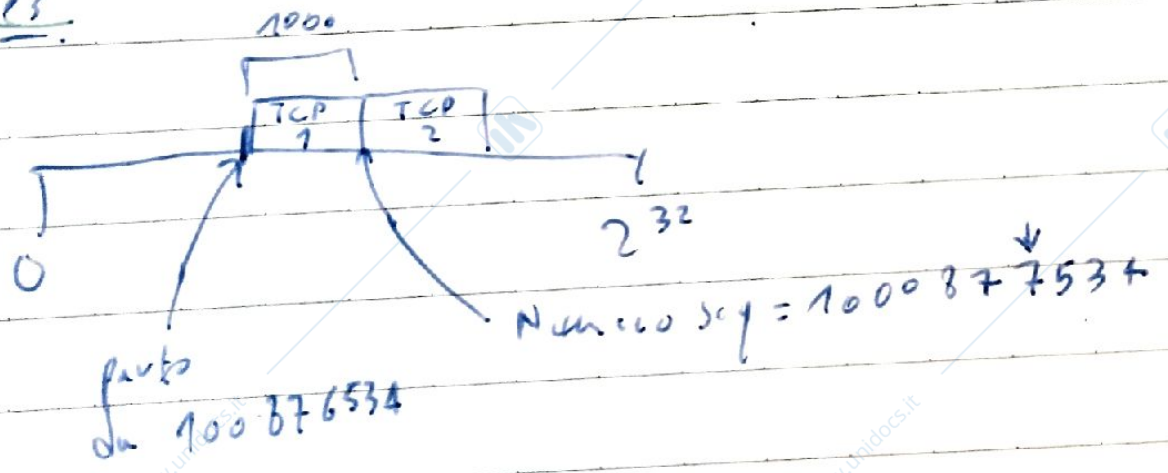 es.
1000
TCP TCP
1 2
0
2^32
Numero seq = 1000877534
parto
da 100876534